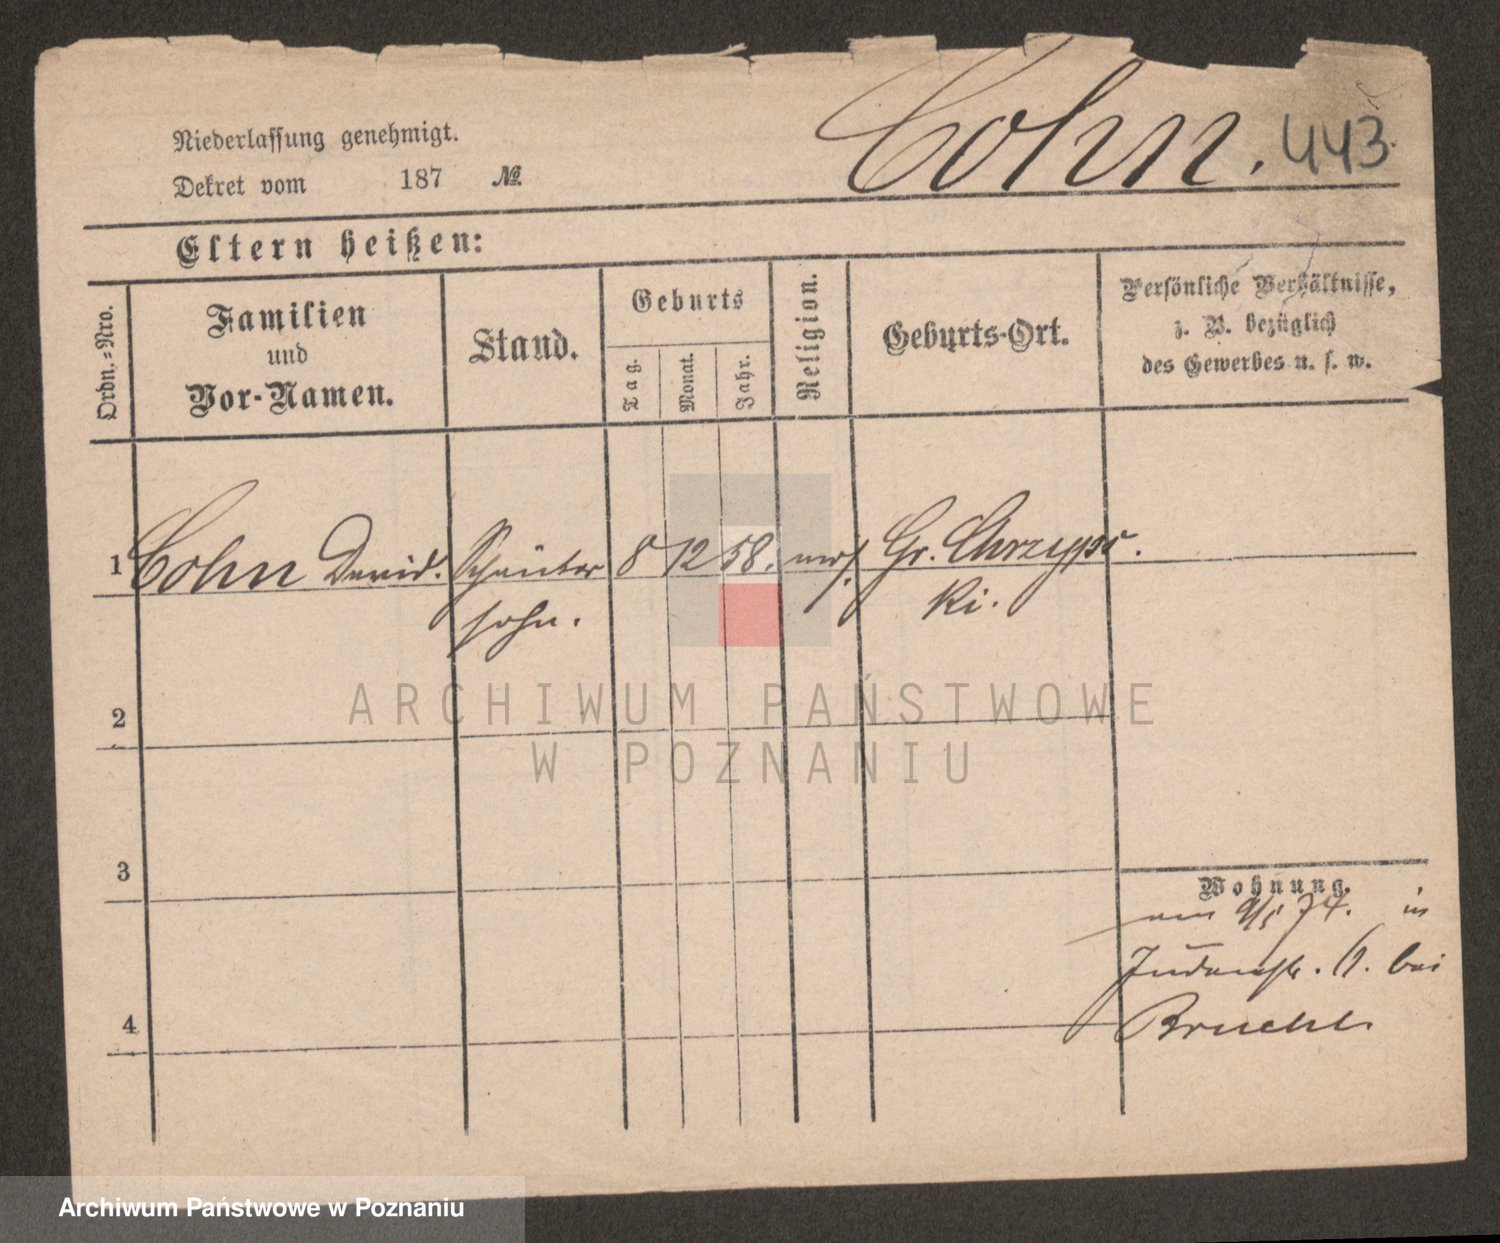 Niederlassung genehmigt.
Dekret vom 187 №.
Cohn. 443.
Eltern heißen:
Ordn.=Nro.
Familien
und
Vor-Namen.
Stand.
Geburts
Tag.
Monat.
Jahr.
Religion.
Geburts-Ort.
Persönliche Verhältnisse,
z. B. bezüglich
des Gewerbes u. s. w.
1 Cohn David. 8 12 58. mos. Gr. Chrzyps
sohn. ki.
2
3
4
Wohnung.
9/5 74. in
Judenstr. 6. bei
ARCHIWUM PAŃSTWOWE
W POZNANIU
Archiwum Państwowe w Poznaniu